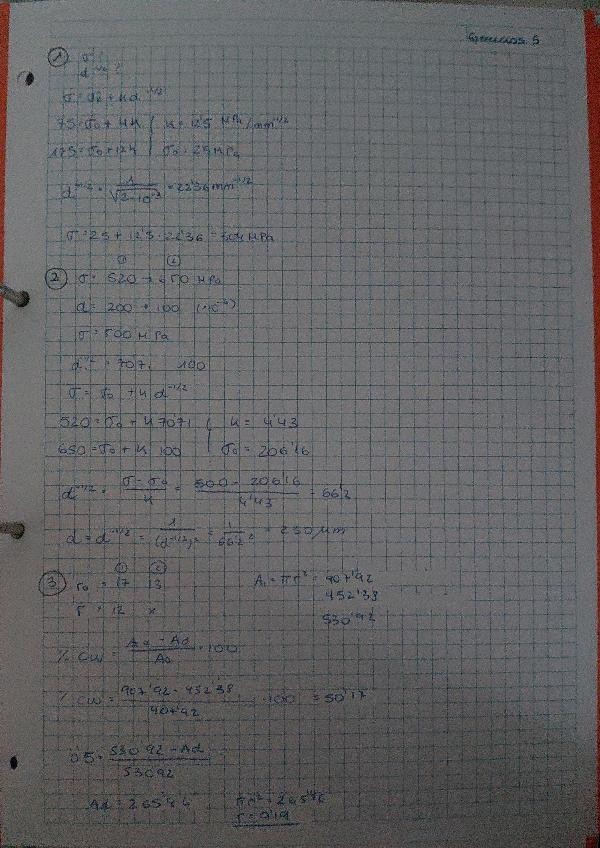 Ejercicios 5
1 σ ?
d⁻¹/² ?
σ = σ₀ + Kd⁻¹/²
75 = σ₀ + 4K | K = 12'5 MPa/mm⁻¹/²
175 = σ₀ + 12K | σ₀ = 25 MPa
d⁻¹/² = 1/√(2·10⁻³) = 22'36 mm⁻¹/²
σ = 25 + 12'5 · 22'36 = 304 MPa
① ②
2 σ = 520 → 650 MPa
d = 200 → 100 (·10⁻⁶)
σ = 500 MPa
d⁻¹/² = 70'71 100
σ = σ₀ + K d⁻¹/²
520 = σ₀ + K 70'71 | K = 4'43
650 = σ₀ + K 100 | σ₀ = 206'16
d⁻¹/² = (σ - σ₀)/K = (500 - 206'16)/4'43 = 66'2
d = d⁻¹/² = 1/(d⁻¹/²)² = 1/66'2² = 230 µm
① ②
3 r₀ = 17 13 A₁ = πr² = 907'92
r = 12 x 452'38
530'92
% CW = (A₀ - Ad)/A₀ · 100
% CW = (907'92 - 452'38)/907'92 · 100 = 50'17
0'5 = (530'92 - Ad)/530'92
Ad = 265'46 πr² = 265'46
r = 9'19